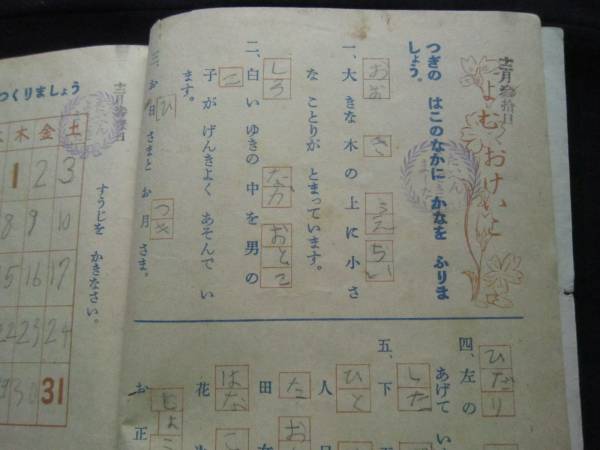 十二月参拾日
よむ おけいこ
つぎの はこのなかに かなを ふりま
しょう。
おお き うえ ちい
一、大きな木の上に小さ
な ことりが とまっています。
しろ なか おとこ
二、白いゆきの中を男の
こ
子が げんきよく あそんでい
ます。
ひ つき
三、お日さまと お月さま。
ひだり
四、左の
あげて い
した
五、下
ひと
人
た お
田
はな こ
花
しょ
お正
つくりましょう
木 金 土
1 2 3
8 9 10
15 16 17
22 23 24
29 30 31
すうじを かきなさい。